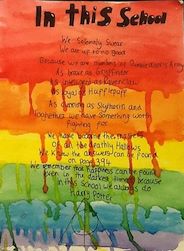 In this School
We Solemnly Swear
We are up to no Good
Because we are members of Dumbledore's Army
As brave as Gryffindor
As intelligent as Ravenclaw
As loyal as Hufflepuff
As cunning as Slytherin and
together we have Something worth
fighting for
We have become the masters
Of all the deathly Hallows
We know the answers can be found
on page 394
We remember that happiness can be found
even in the darkest times because
in this School we always do
Harry Potter